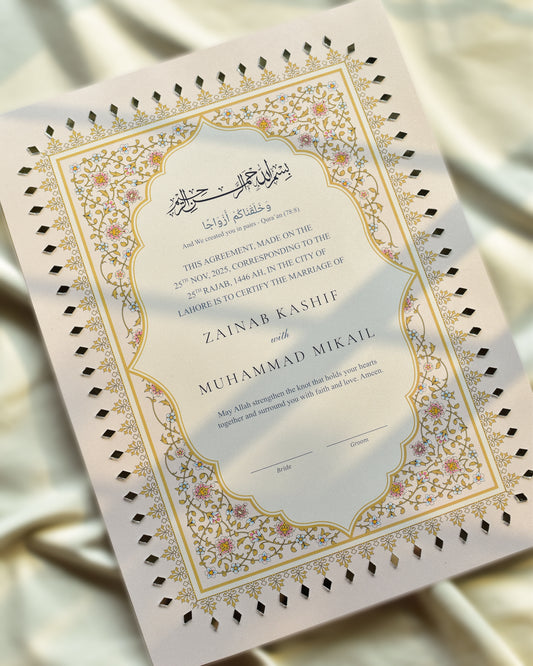 بسم الله الرحمن الرحيم
وَخَلَقْنَاكُمْ أَزْوَاجًا
And We created you in pairs - Qura'an (78:8)
THIS AGREEMENT, MADE ON THE
25TH NOV, 2025, CORRESPONDING TO THE
25TH RAJAB, 1446 AH, IN THE CITY OF
LAHORE IS TO CERTIFY THE MARRIAGE OF
ZAINAB KASHIF
with
MUHAMMAD MIKAIL
May Allah strengthen the knot that holds your hearts
together and surround you with faith and love. Ameen.
Bride
Groom